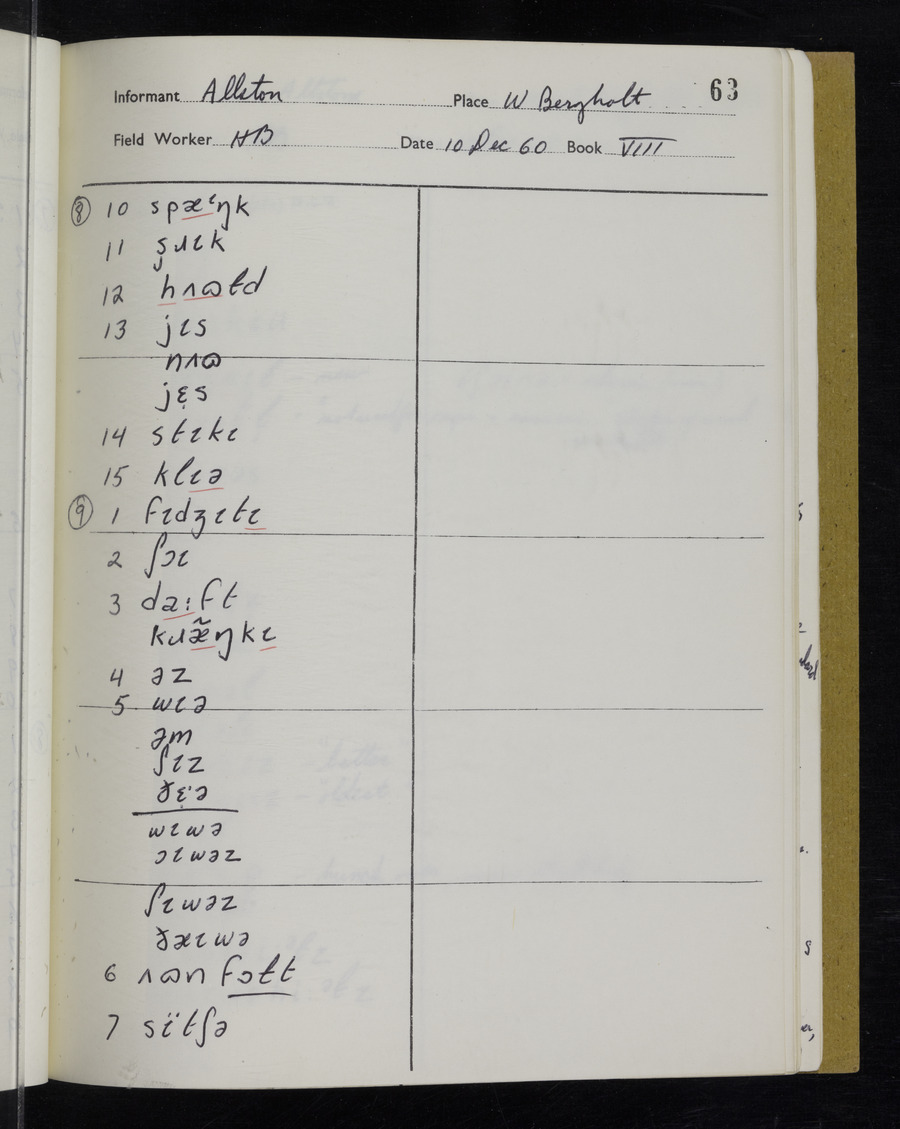 63
Informant Allston Place W Bergholt
Field Worker HB Date 10 Dec 60 Book VIII
⑧ 10 spæᶦŋk
11 ʂɹɪk
12 hʌɷɫd
13 jɪs
nʌɷ
jɛ̣s
14 stɪkɪ
15 klɪə
⑨ 1 fɪdʒɪtɪ
2 ʃɔɪ
3 da:ft
kɹæ̃ŋkɪ
4 əz
5 wɪə
əm
ʃɪz
ðɛ̣·ə
wɪwə
ɔɪwəz
ʃɪwəz
ðæɪwə
6 ʌɷn fɔɫt
7 sïtʃə